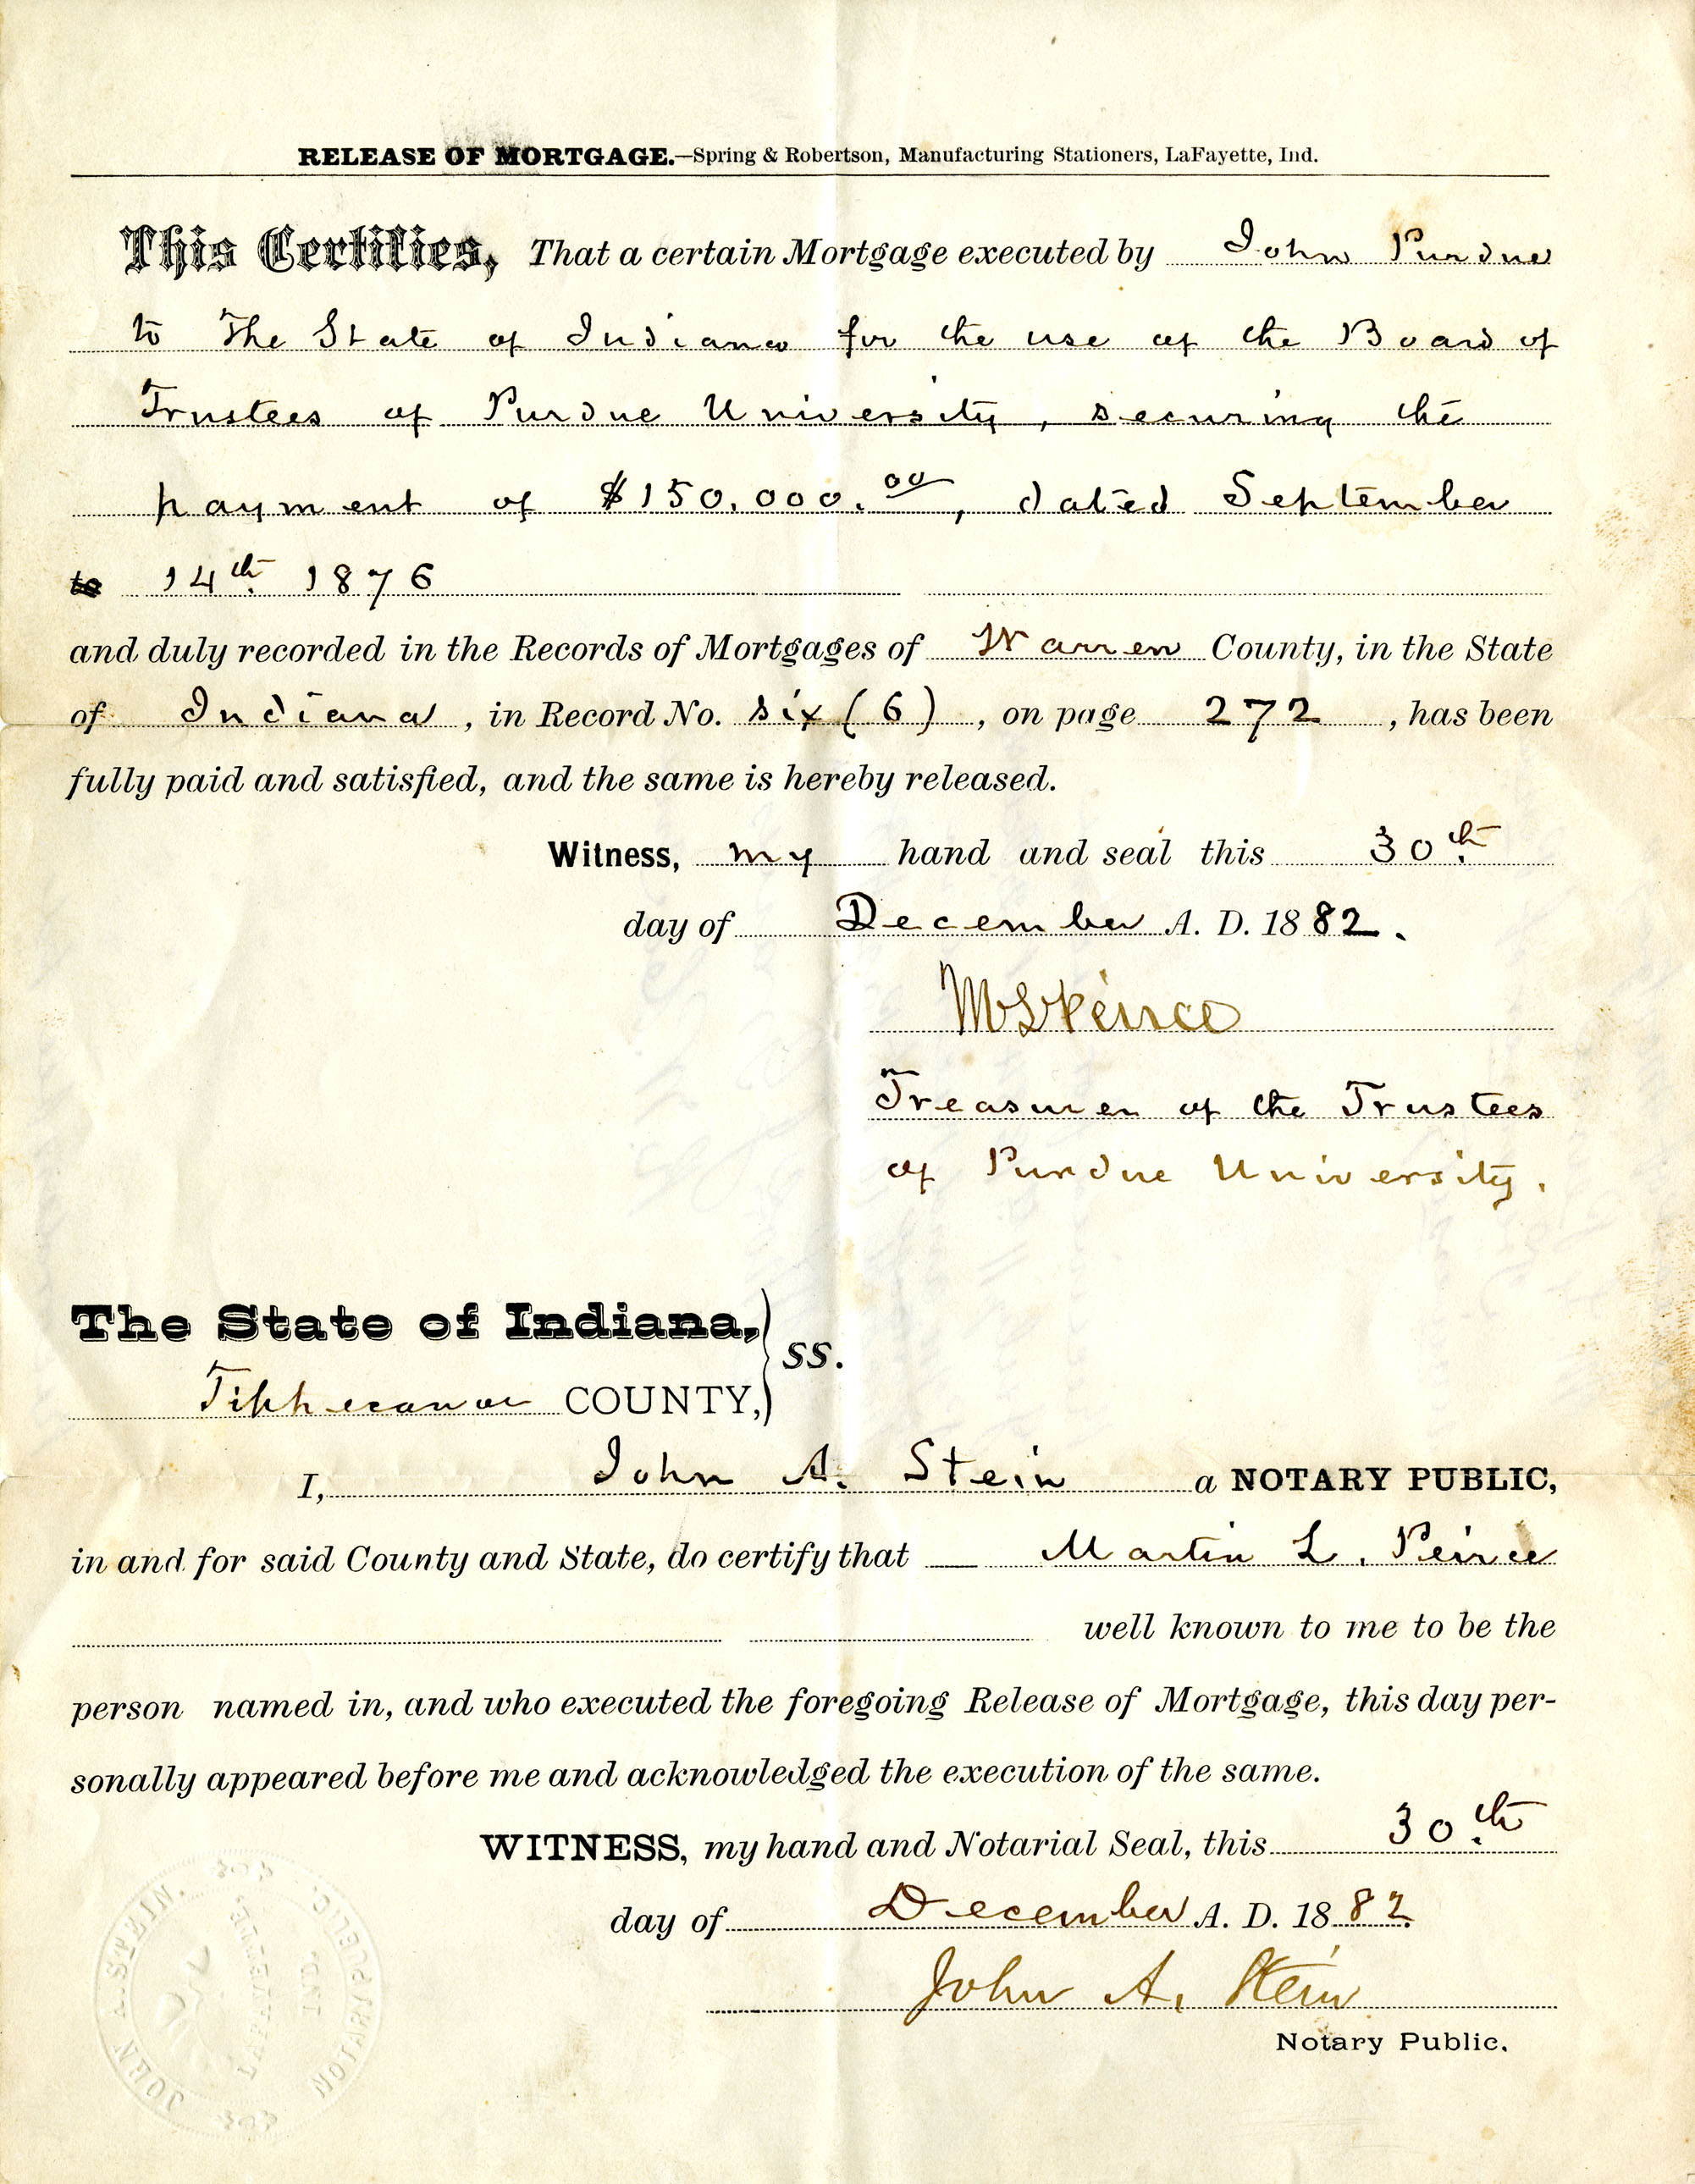 RELEASE OF MORTGAGE.—Spring & Robertson, Manufacturing Stationers, LaFayette, Ind.
This Certifies, That a certain Mortgage executed by John Purdue
to The State of Indiana for the use of the Board of
Trustees of Purdue University, securing the
payment of $150,000.00, dated September
to 14th 1876
and duly recorded in the Records of Mortgages of Warren County, in the State
of Indiana, in Record No. six (6), on page 272, has been
fully paid and satisfied, and the same is hereby released.
Witness, my hand and seal this 30th
day of December A. D. 1882.
M L Peirce
Treasurer of the Trustees
of Purdue University.
The State of Indiana,
ss.
Tippecanoe COUNTY,
I, John A. Stein a NOTARY PUBLIC,
in and for said County and State, do certify that — Martin L. Peirce
well known to me to be the
person named in, and who executed the foregoing Release of Mortgage, this day per-
sonally appeared before me and acknowledged the execution of the same.
WITNESS, my hand and Notarial Seal, this 30th
day of December A. D. 1882
John A. Stein
Notary Public.
JOHN A. STEIN.
NOTARY PUBLIC
LAFAYETTE
IND.